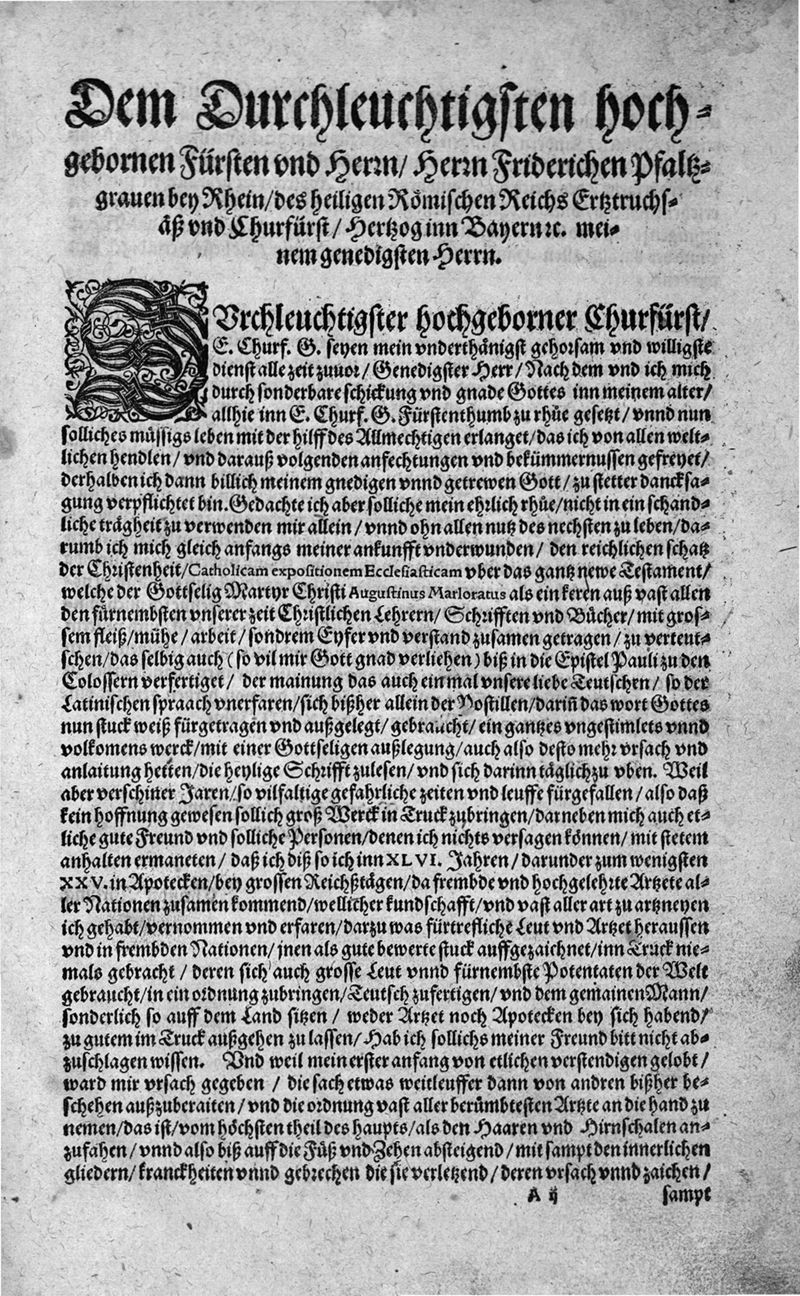 Dem Durchleuchtigsten hoch-
gebornen Fürsten vnd Herrn/ Herrn Friderichen Pfaltz-
grauen bey Rhein/des heiligen Römischen Reichs Ertztruchs-
äß vnd Churfürst/ Hertzog inn Bayern ꝛc. mei-
nem genedigsten Herrn.
DVrchleuchtigster hochgeborner Churfürst/
E. Churf. G. seyen mein vnderthänigst gehorsam vnd willigste
dienst alle zeit zuuor/ Genedigster Herr/ Nach dem vnd ich mich
durch sonderbare schickung vnd gnade Gottes inn meinem alter/
allhie inn E. Churf. G. Fürstenthumb zu rhüe gesetzt/ vnnd nun
solliches müssigs leben mit der hilff des Allmechtigen erlanget/das ich von allen welt-
lichen hendlen/ vnd darauß volgenden anfechtungen vnd bekümmernussen gefreyet/
derhalben ich dann billich meinem gnedigen vnnd getrewen Gott/ zu stetter dancksa-
gung verpflichtet bin. Gedachte ich aber solliche mein ehrlich rhüe/nicht in ein schand-
liche trägheit zu verwenden mir allein/ vnnd ohn allen nutz des nechsten zu leben/da-
rumb ich mich gleich anfangs meiner ankunfft vnderwunden/ den reichlichen schatz
der Christenheit/Catholicam expositionem Ecclesiasticam vber das gantz newe Testament/
welche der Gottselig Martyr Christi Augustinus Marloratus als ein keren auß vast allen
den fürnembsten vnserer zeit Christlichen Lehrern/ Schrifften vnd Bücher/ mit gros-
sem fleiß/mühe/ arbeit/ sondrem Eyfer vnd verstand zusamen getragen/ zu verteut-
schen/das selbig auch (so vil mir Gott gnad verliehen) biß in die Epistel Pauli zu den
Colossern verfertiget/ der mainung das auch ein mal vnsere liebe Teutschen/ so der
Latinischen spraach vnerfaren/sich bißher allein der Postillen/ dariñ das wort Gottes
nun stuck weiß fürgetragen vnd außgelegt/ gebraucht/ ein gantzes vngestimlets vnnd
volkomens werck/mit einer Gottseligen außlegung/auch also desto mehr vrsach vnd
anlaitung hetten/die heylige Schrifft zulesen/ vnd sich darinn täglich zu vben. Weil
aber verschiner Jaren/so vilfaltige gefahrliche zeiten vnd leuffe fürgefallen/ also daß
kein hoffnung gewesen sollich groß Werck in Truck zubringen/ dar neben mich auch et-
liche gute Freund vnd solliche Personen/denen ich nichts versagen können/ mit stetem
anhalten ermaneten/ daß ich diß so ich inn XLVI. Jahren/ darunder zum wenigsten
XXV. in Apotecken/bey grossen Reichßtägen/da frembde vnd hochgelehrte Artzete al-
ler Nationen zusamen kommend/wellicher kundschafft/vnd vast aller art zu artzneyen
ich gehabt/vernommen vnd erfaren/darzu was fürtrefliche Leut vnd Artzet heraussen
vnd in frembden Nationen/ jnen als gute bewerte stuck auffgezaichnet/inn Truck nie-
mals gebracht/ deren sich auch grosse Leut vnnd fürnembste Potentaten der Welt
gebraucht/in ein ordnung zubringen/Teutsch zufertigen/ vnd dem gemainen Mann/
sonderlich so auff dem Land sitzen/ weder Artzet noch Apotecken bey sich habend/
zu gutem im Truck außgehen zu lassen/ Hab ich sollichs meiner Freund bitt nicht ab-
zuschlagen wissen. Vnd weil mein erster anfang von etlichen verstendigen gelobt/
ward mir vrsach gegeben/ die sach etwas weitleuffer dann von andren bißher be-
schehen außzuberaiten/ vnd die ordnung vast aller berümbtesten Artzte an die hand zu
nemen/das ist/vom höchsten theil des haupts/als den Haaren vnd Hirnschalen an-
zufahen/ vnnd also biß auff die Füß vnd Zehen absteigend/ mit sampt den innerlichen
gliedern/ kranckheiten vnnd gebrechen die sie verletzend/ deren vrsach vnnd zaichen/
A ij sampt